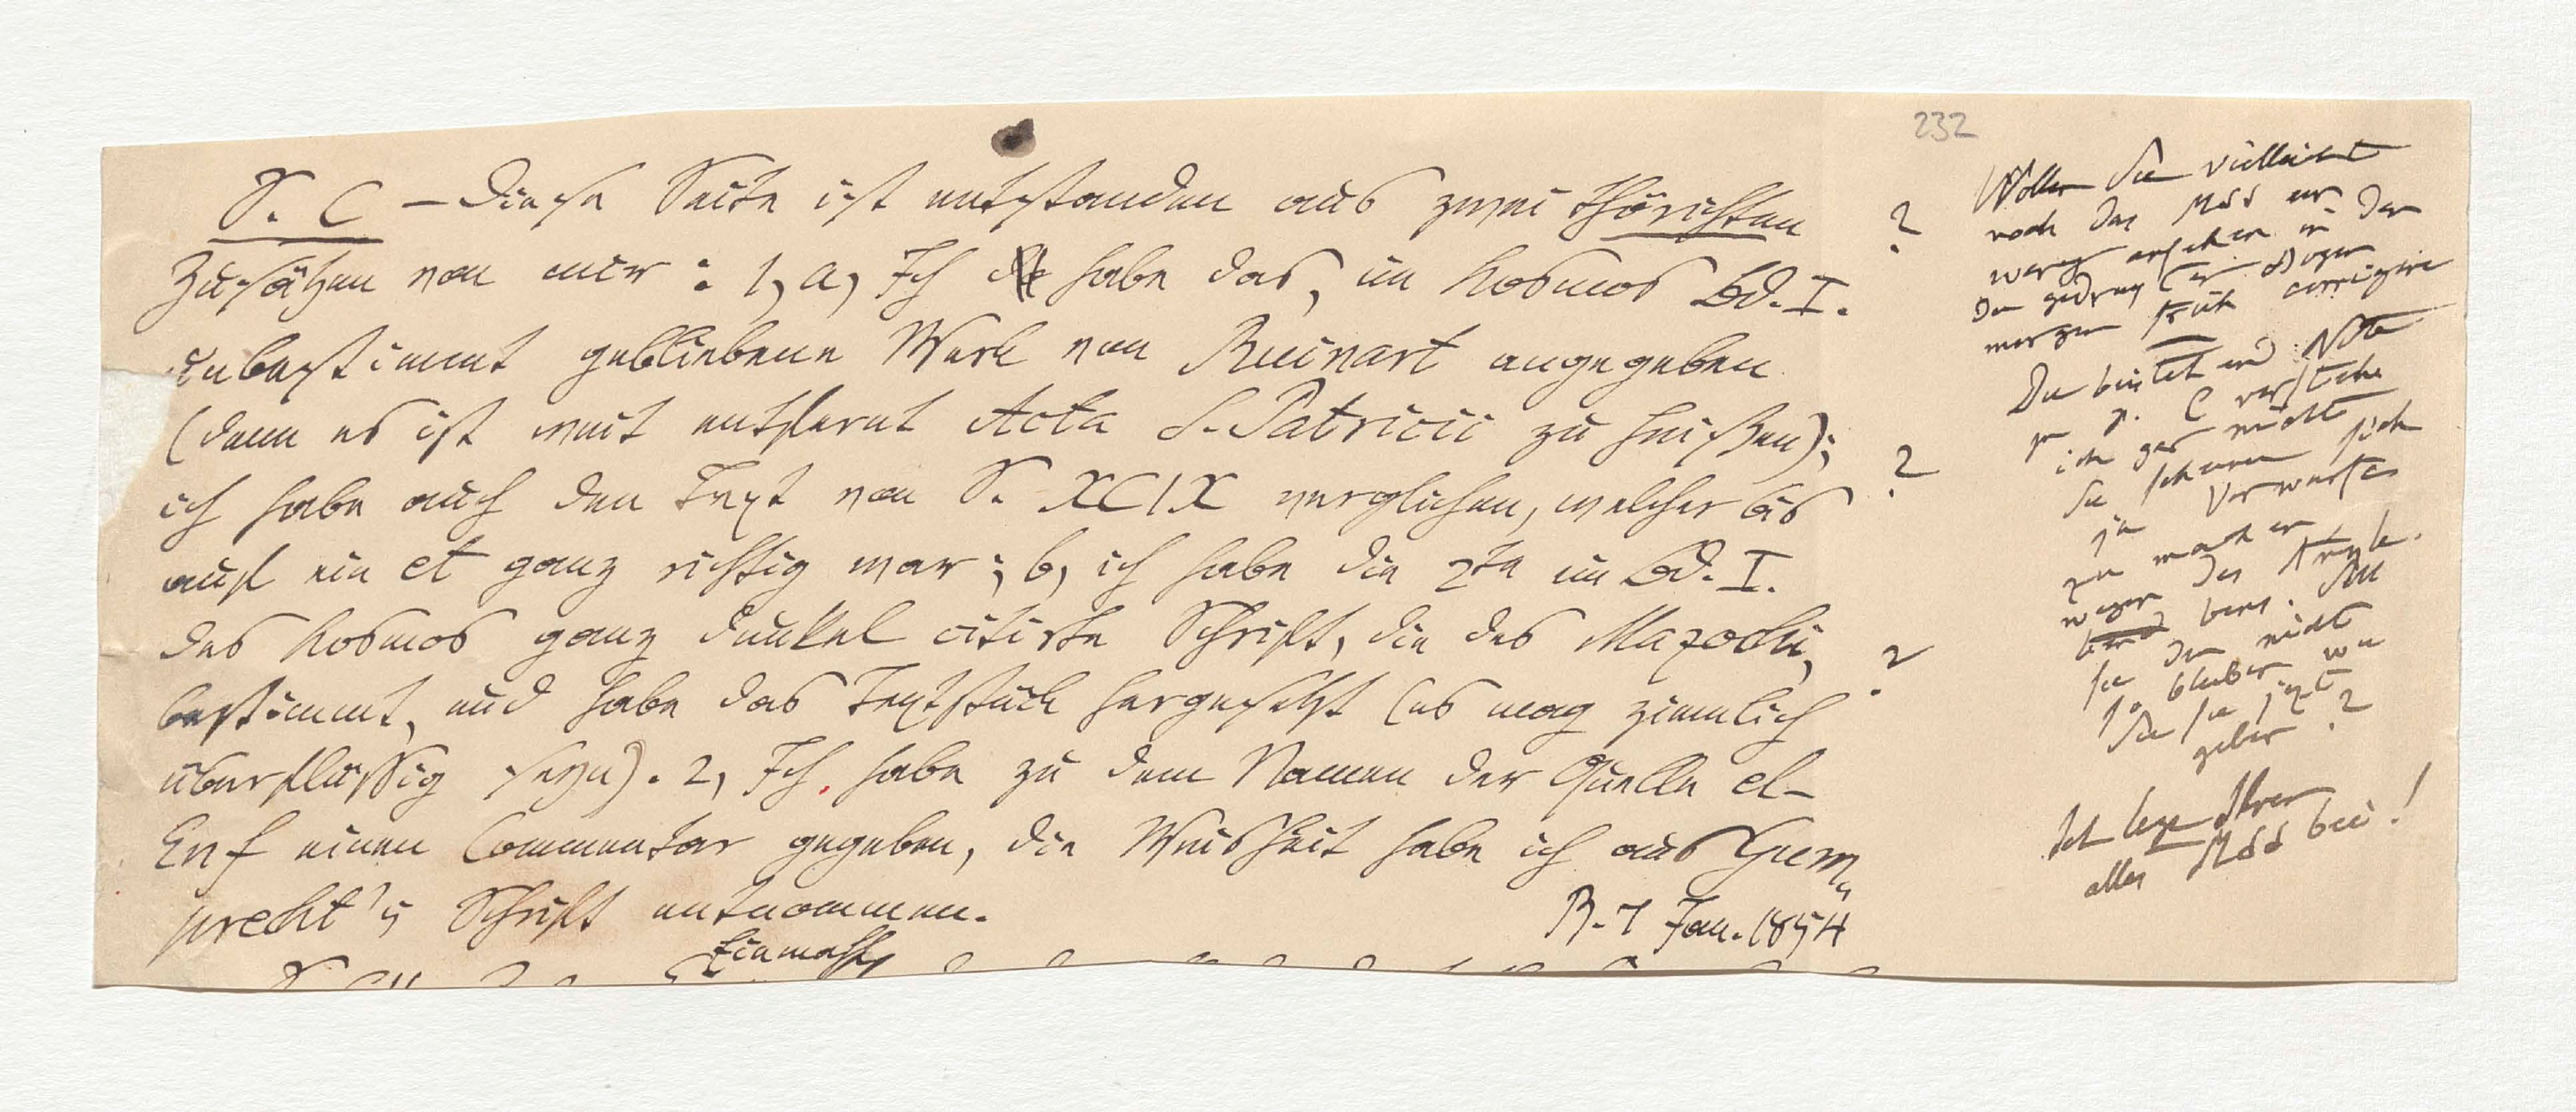 232
S. C – Diese Seite ist entstanden aus zwei thörichten
Zusätzen von mir: 1, a, Ich habe das, im Kosmos Bd. I.
unbestimmt gebliebene Werk von Ruinart angegeben
(denn es ist weit entfernt Acta S. Patricii zu heißen);
ich habe auch den Text von S. XCIX verglichen, welcher bis
auf ein et ganz richtig war; b, ich habe die 2te im Bd. I.
des Kosmos ganz dunkel citirte Schrift, die des Mazochi,
bestimmt, und habe das Textstück hergesetzt (es mag ziemlich
überflüssig seyn). 2, Ich habe zu dem Namen der Quelle el-
Enf einen Commentar gegeben, die Weisheit habe ich aus Gum-
precht's Schrift entnommen.
B. 7 Jan. 1854
Einmahl
?
?
?
Wollen Sie vielleicht
noch das MSS
wegen ansehen in
den Bogen
morgen früh corrigire
Die Note
zu p. C verstehe
ich gar nicht
Sie scheinen sich
ja Vorwürfe
zu machen
wegen des
Soll
sie denn nicht
so bleiben wie
Sie sie jezt
geben?
Ich lege Ihnen
alles MSS bei!